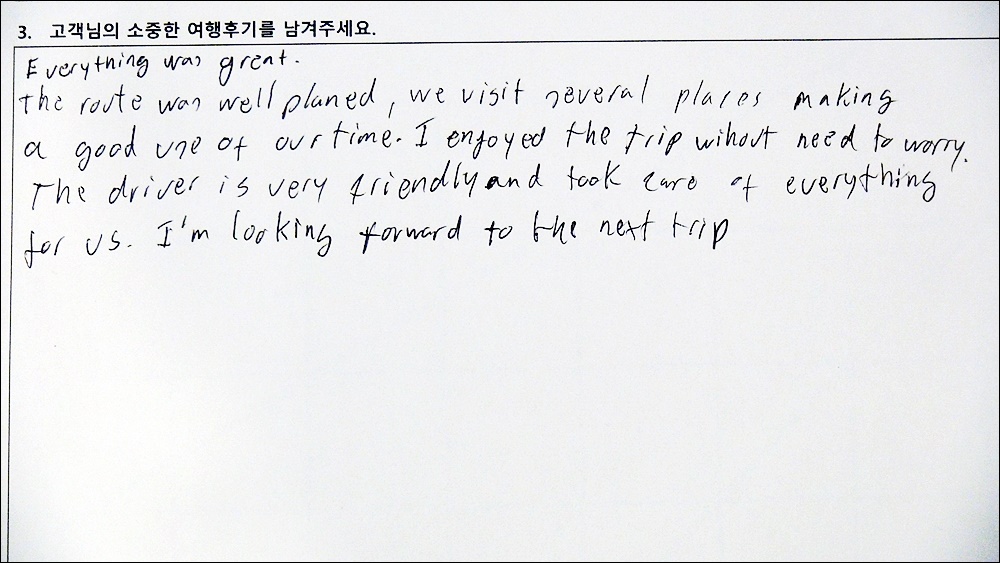 3. 고객님의 소중한 여행후기를 남겨주세요.
Everything was great.
The route was well planed, we visit several places making
a good use of our time. I enjoyed the trip wihout need to worry.
The driver is very friendly and took care of everything
for us. I'm looking forward to the next trip